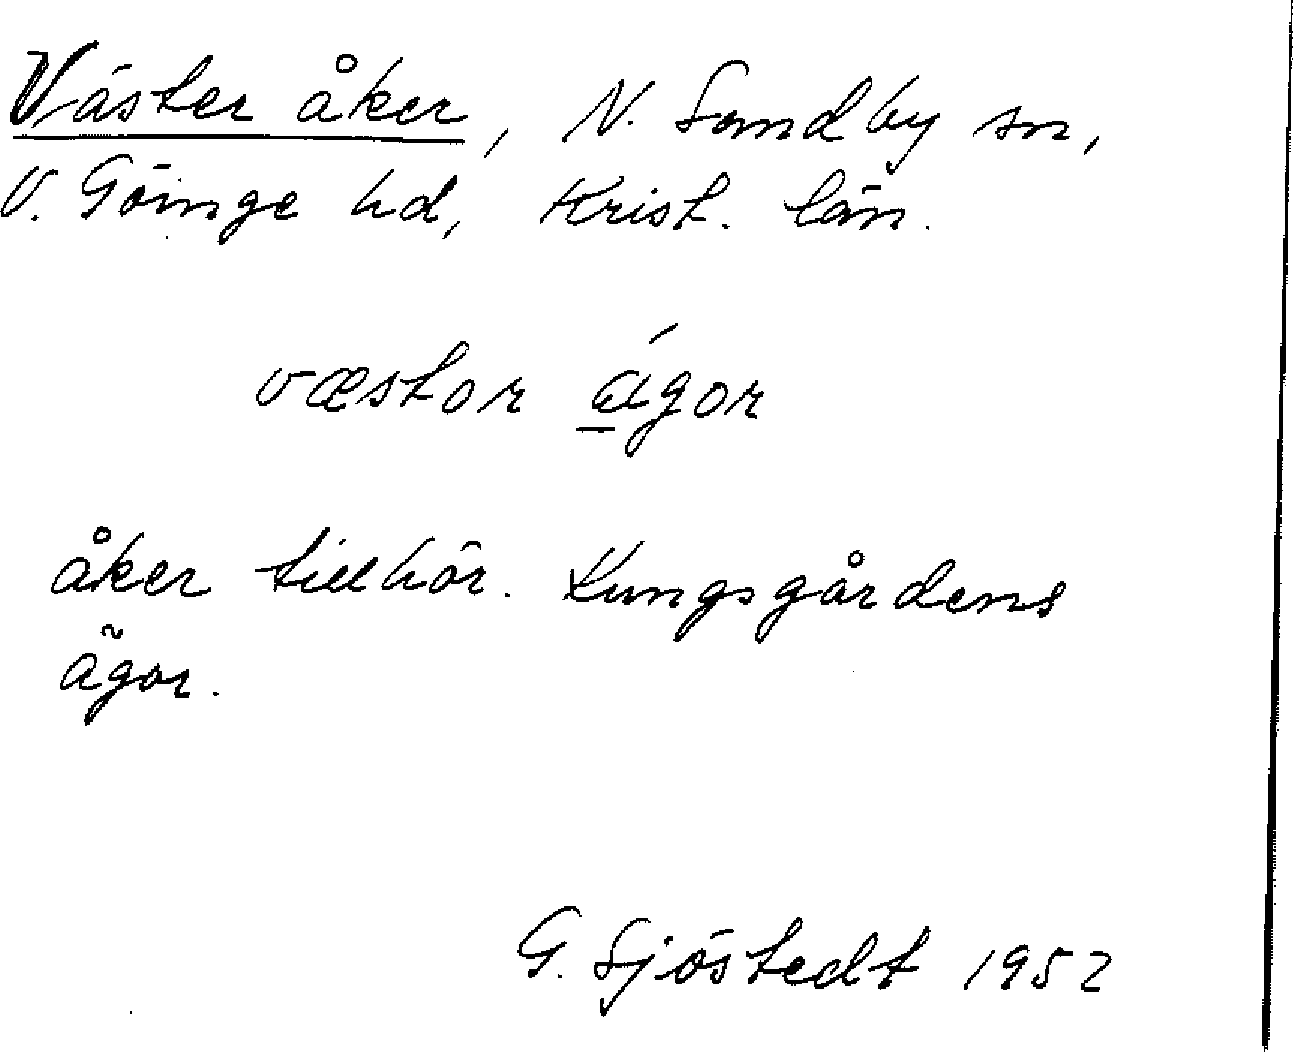 Väster åker, N. Sandby sn,
V. Göinge hd, Krist. län.
væstor ágor
åker tillhör. Kungsgårdens
ägor.
G. Sjöstedt 1952